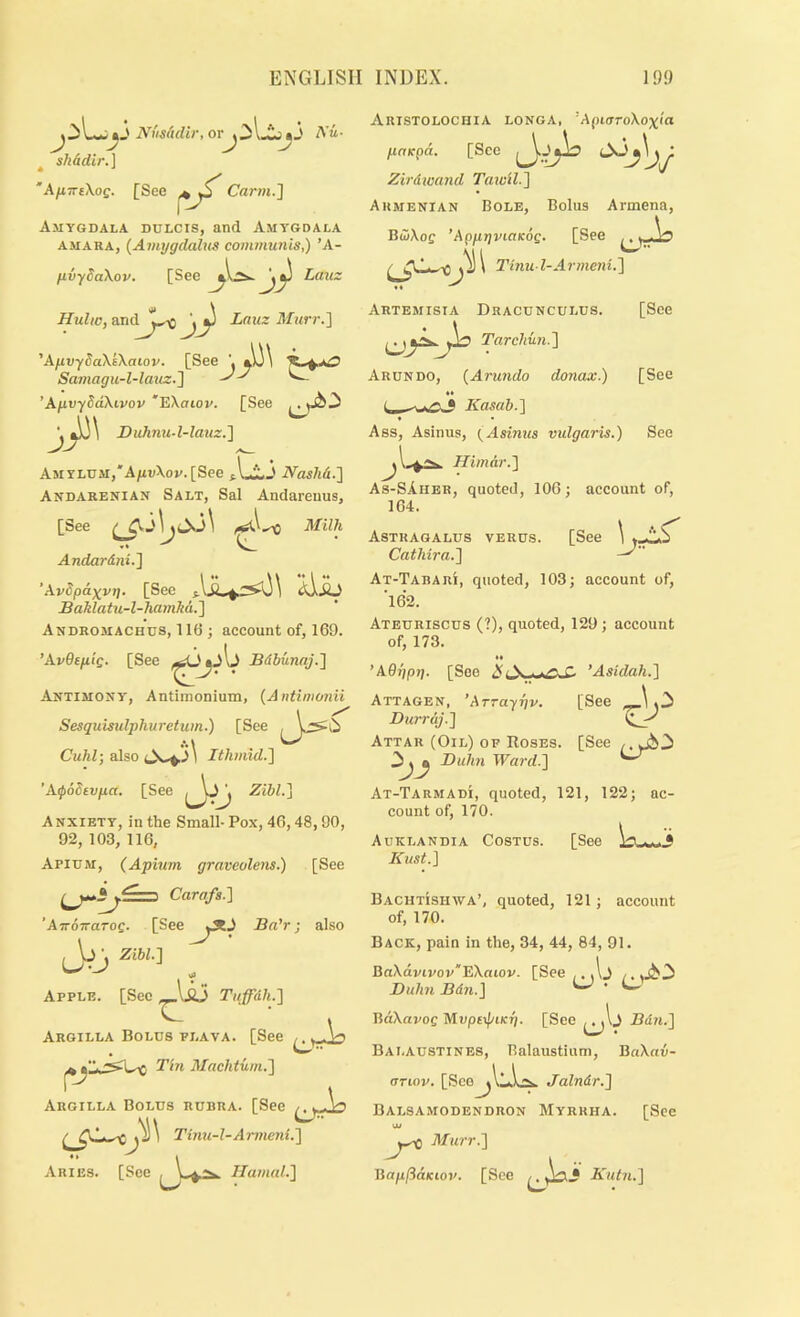 ENGLISH INDEX. 199
نوسادر Núsádir, or نوشادر Nú-
shádir.]
Ἄμπελος. [See كرم Carm.]
Amygdala dulcis, and Amygdala
amara, (Amygdalus communis,) Ἀ-
μύγδαλον. [See لوز حلو Lauz
Hulw, and لوز مر Lauz Murr.]
Ἀμυγδαλέλαιον. [See صمغ اللوز
Samagu-l-lauz.]
Ἀμυγδάλινον Ἔλαιον. [See دهن
اللوز Duhnu-l-lauz.]
Amylum, Ἄμυλον. [See نشاء Nashá.]
Andarenian Salt, Sal Andarenus,
[See ملح اندراني Milh
Andarání.]
Ἀνδράχνη. [See بقلة الحمقاء
Baklatu-l-hamká.]
Andromachus, 116; account of, 169.
Ἀνθεμίς. [See بابونج Bábúnaj.]
Antimony, Antimonium, (Antimonii
Sesquisulphuretum.) [See كحل
Cuhl; also اثمد Ithmid.]
Ἀφόδευμα. [See زبل Zibl.]
Anxiety, in the Small-Pox, 46, 48, 90,
92, 103, 116,
Apium, (Apium graveolens.) [See
كرفس Carafs.]
Ἀπόπατος. [See بعر Ba'r; also
زبل Zibl.]
Apple. [See تفاح Tuffáh.]
Argilla Bolus flava. [See طين
مختوم Tín Machtúm.]
Argilla Bolus rubra. [See طين
الارمني Tínu-l-Armení.]
Aries. [See حمل Hamal.]
Aristolochia longa, Ἀριστολοχία
μακρά. [See زراوند طويل
Ziráwand Tawíl.]
Armenian Bole, Bolus Armena,
Βῶλος Ἀρμηνιακός. [See طين
الارمني Tínu-l-Armení.]
Artemisia Dracunculus. [See
طرخون Tarchún.]
Arundo, (Arundo donax.) [See
قصب Kasab.]
Ass, Asinus, (Asinus vulgaris.) See
حمار Himár.]
As-Sáher, quoted, 106; account of,
164.
Astragalus verus. [See كثيرا
Cathíra.]
At-Tabarí, quoted, 103; account of,
162.
Ateuriscus (?), quoted, 129; account
of, 173.
Ἀθήρη. [See عصيدة 'Asídah.]
Attagen, Ἀτταγήν. [See دراج
Durráj.]
Attar (Oil) of Roses. [See دهن
ورد Duhn Ward.]
At-Tarmadí, quoted, 121, 122; ac-
count of, 170.
Auklandia Costus. [See قسط
Kust.]
Bachtíshwa', quoted, 121; account
of, 170.
Back, pain in the, 34, 44, 84, 91.
Βαλάνινον Ἔλαιον. [See دهن بان
Duhn Bán.]
Βάλανος Μυρεψική. [See بان Bán.]
Balaustines, Balaustium, Βαλαύ-
στιον. [See جلنار Jalnár.]
Balsamodendron Myrrha. [See
مر Murr.]
Βαμβάκιον. [See قطن Kutn.]